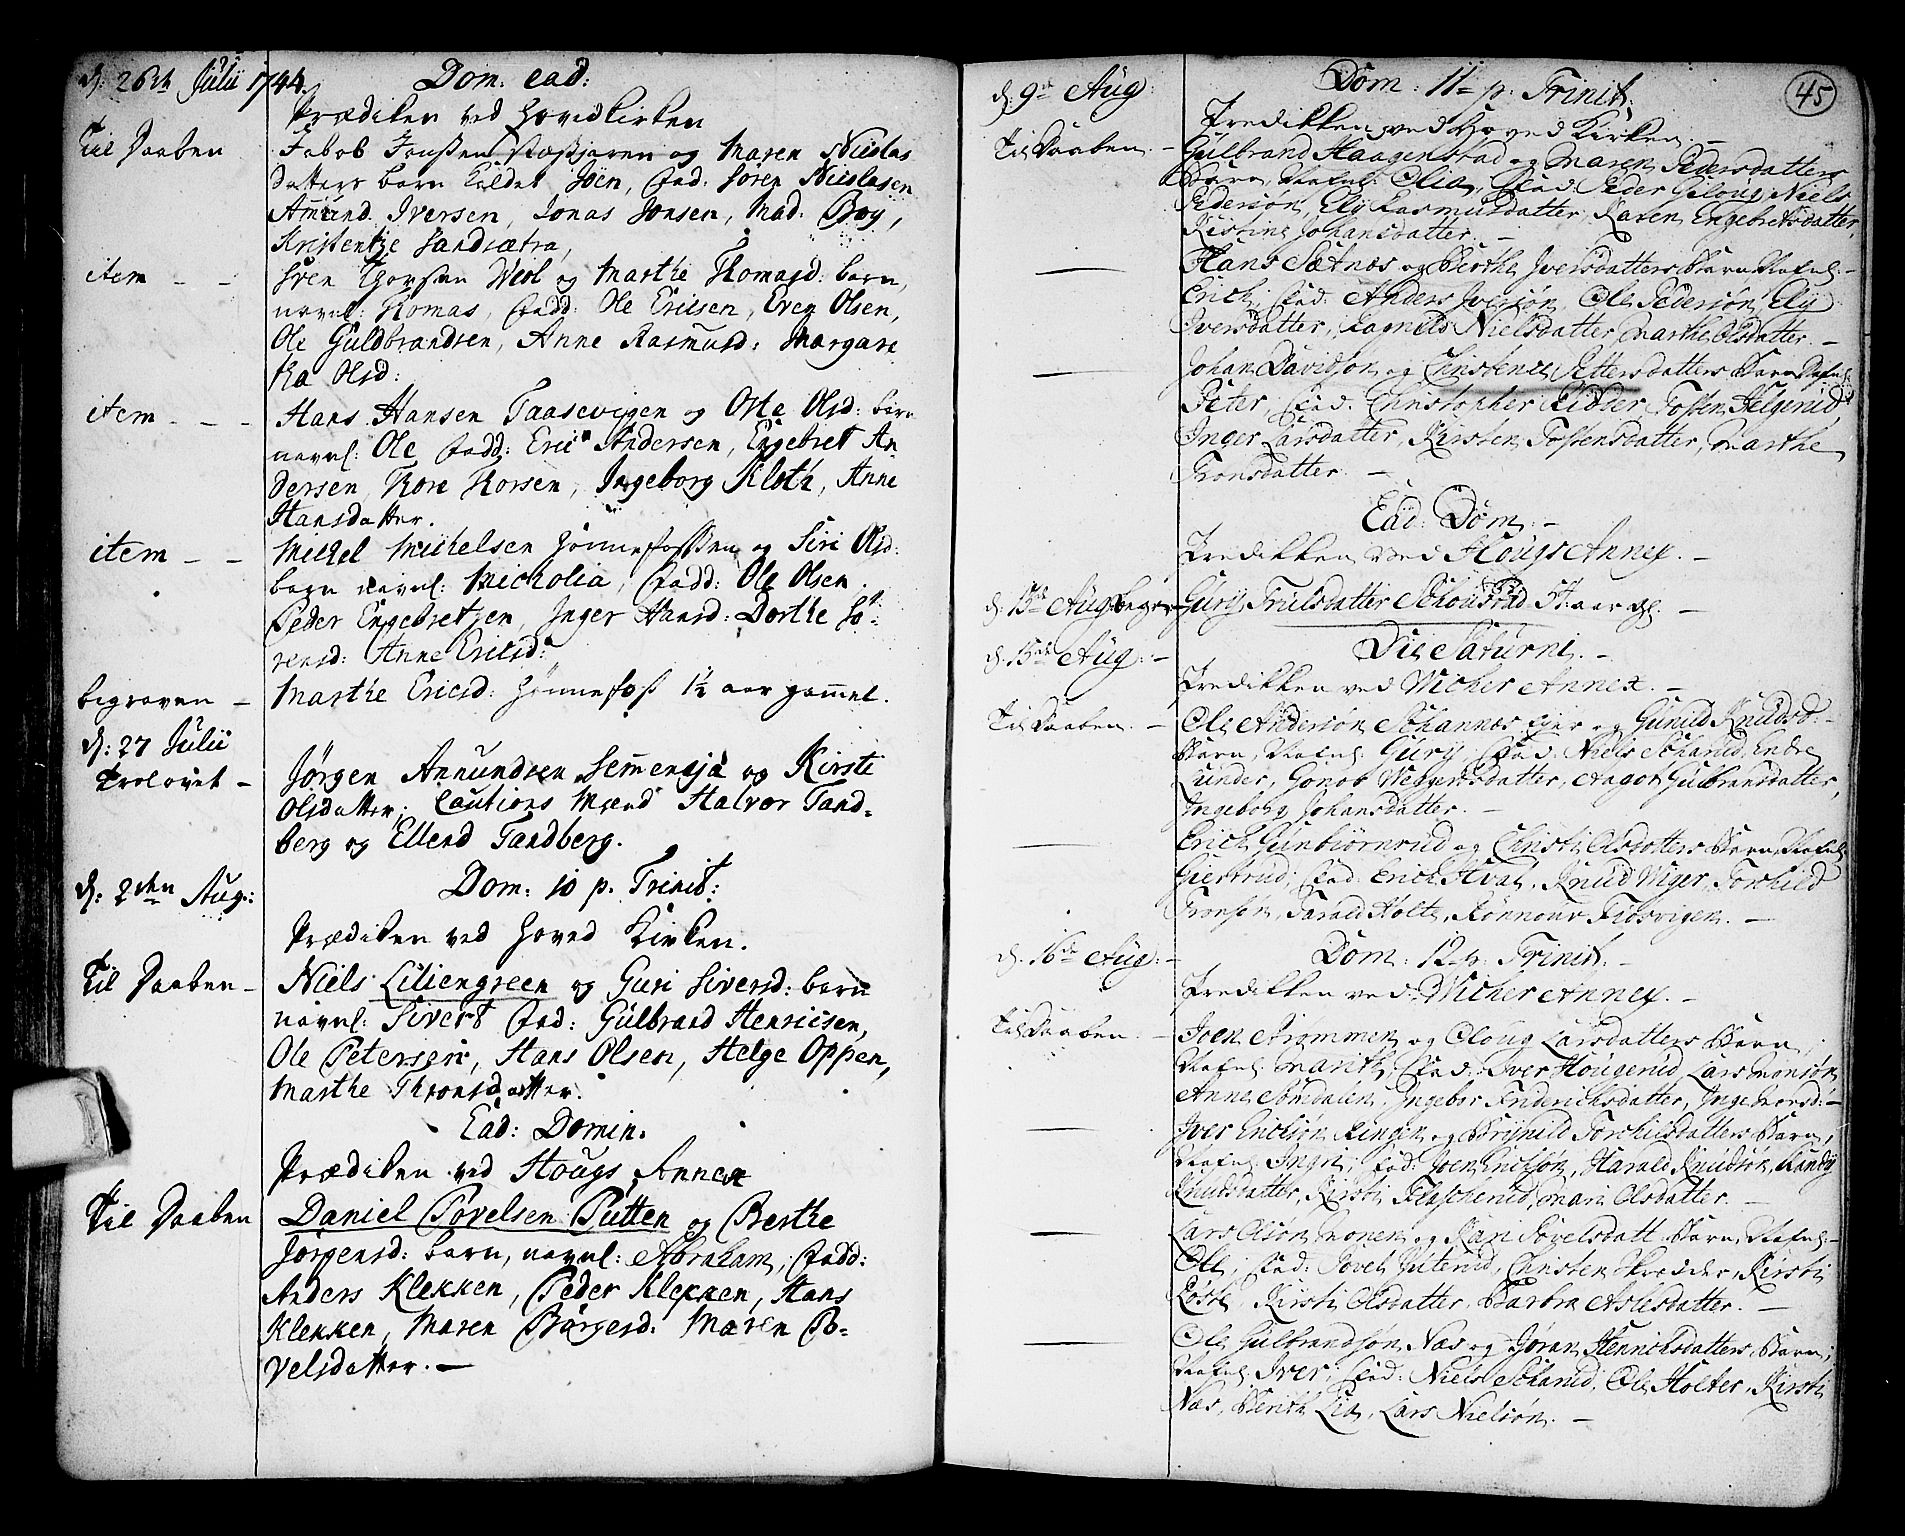 d: 26de Julii 1744. Dom: ead:
Prædiken ved Hovidkirken
Til Daaben Jakob Jensen og Maren Nicolas
datters barn kaldet Joen, Fad: Soren Nicolasen
Amund Iversen, Jonas Jonsen, Mad: Boy,
Kristentze Sandsætra,
item - - Sven Thorsen Weol og Marthe Thomasd: barn,
navnl: Thomas, Fadd: Ole Ericsen, Even Olsen,
Ole Guldbrandsen, Anne Rasmusd: Margare
tha Olsd:
item - - - Hans Hansen Taasevigen og Oste Olsd: barn
navnl: Ole Fadd: Eric Andersen, Engebret An
dersen, Thore Thorsen, Ingeborg Kloth, Anne
Hansdatter.
item - - Michel Michelsen Hønnefossen og Siri Olsd:
barn navnl: Micholia, Fadd: Ole Olsen.
Peder Engebretsen, Inger Hansd: Dorthe So-
rensd: Anne Ericsd:
begraven - Marthe Ericsd: Hønnefoss 1½ aar gammel.
d: 27 Julii
Trolovet - Jørgen Annundsen Semmensja og Kirste
Olsdatter, Cautions Mænd Halvor Tand-
berg og Ellend Tandberg.
d: 2den Aug: Dom: 10 p. Trinit:
Prædiken ved Hoved Kirken.
Til Daaben - Niels Liliengreen og Guri Siversd: barn
navnl: Sivert Fad: Gulbrand Henricsen,
Ole Petersen, Hans Olsen, Helge Oppen,
Marthe Thronsdatter.
Ead: Domin.
Prædiken ved Hougs Annex
Til Daaben Daniel Povelsen Putten og Berthe
Jørgensd: barn, navnl: Abraham, Fadd:
Anders Klekken, Peder Klekken, Hans
Klekken, Maren Børgesd: Maren Po-
velsdatter. -
45
d: 9de Aug: Dom: 11 p. Trinit:
Predikken ved Hoved Kirken. -
Til Daaben. - Gulbrand Haagenstad og Maren Pedersdatters
Barn, Nafnl: Olia, Fad: Peder Gloug, Niels
Pedersøn, Ely Rasmusdatter, Karen Engebretsdatter,
Kistine Johansdatter. -
Hans Sætnæs og Berthe Iversdatters Barn Nafnl: -
Erich, Fad: Anders Iversøn, Ole Pedersøn, Ely
Iversdatter, Ragnild Nielsdatter, Marthe Olsdatter. -
Johan Davidson og Christence Pettersdatters Barn Nafnl:
Peter, Fad: Christopher Ridder, Tosten Helgerud
Inger Larsdatter, Kirsten Tostensdatter, Marthe
Tronsdatter. -
Ead: Dom: -
Predikken ved Hougs Annex. -
d: 13de Aug: begra- Gury Trulsdatter Schousrud 51 aar gl. -
d. 15de Aug: - Die Saturni. -
Predikken ved Wicher Annex. -
Til Daaben. - Ole Andersøn Schannes Ejer og Gunild Knudsd: -
Barn, Nafnl: Gury, Fad: Niels Scharud, Endre
Lunder, Gonob Weggersdatter, Aagot Gulbransdatter,
Ingeborg Johansdatter. -
Erich Gunbiørnrud og Christi Olsdatters Barn, Nafnl:
Giertrud, Fad: Erich Hval, Knud Wiger, Torchild
Tronsøn, Tarald Holte, Rønnour Fiøsvigen. -
d. 16de Aug: - Dom: 12 p: Trinit: -
Predikken ved Wicher Annex. -
Til Daaben. - Joen Strømmen og Oloug Larsdatters Barn,
Nafnl: Marith, Fad: Iver Hougerud, Lars Monsøn
Anne Sørdalen, Ingebor Friderichsdatter, Inge Iversd: -
Iver Erichsøn Ringen og Brynild Torchilsdatters Barn,
Nafnl: Ingri, Fad: Joen Erichsøn, Harald Knudsøn, Randy
Knudsdatter, Kirsti Flascherud, Mari Olsdatter. -
Lars Olsøn Monen og Kari Povelsdatt: Barn, Nafnl: -
Ole, Fad: Povel Juterud, Christen Skredder, Kirsti
Løste, Kirsti Olsdatter, Barbra Aslesdatter. -
Ole Gulbrandsøn Næs og Jøran Hennichsdatters Barn,
Nafnl: Iver, Fad: Niels Scharud, Ole Holter, Kirsti
Næs, Berith Lia, Lars Nielsøn. -